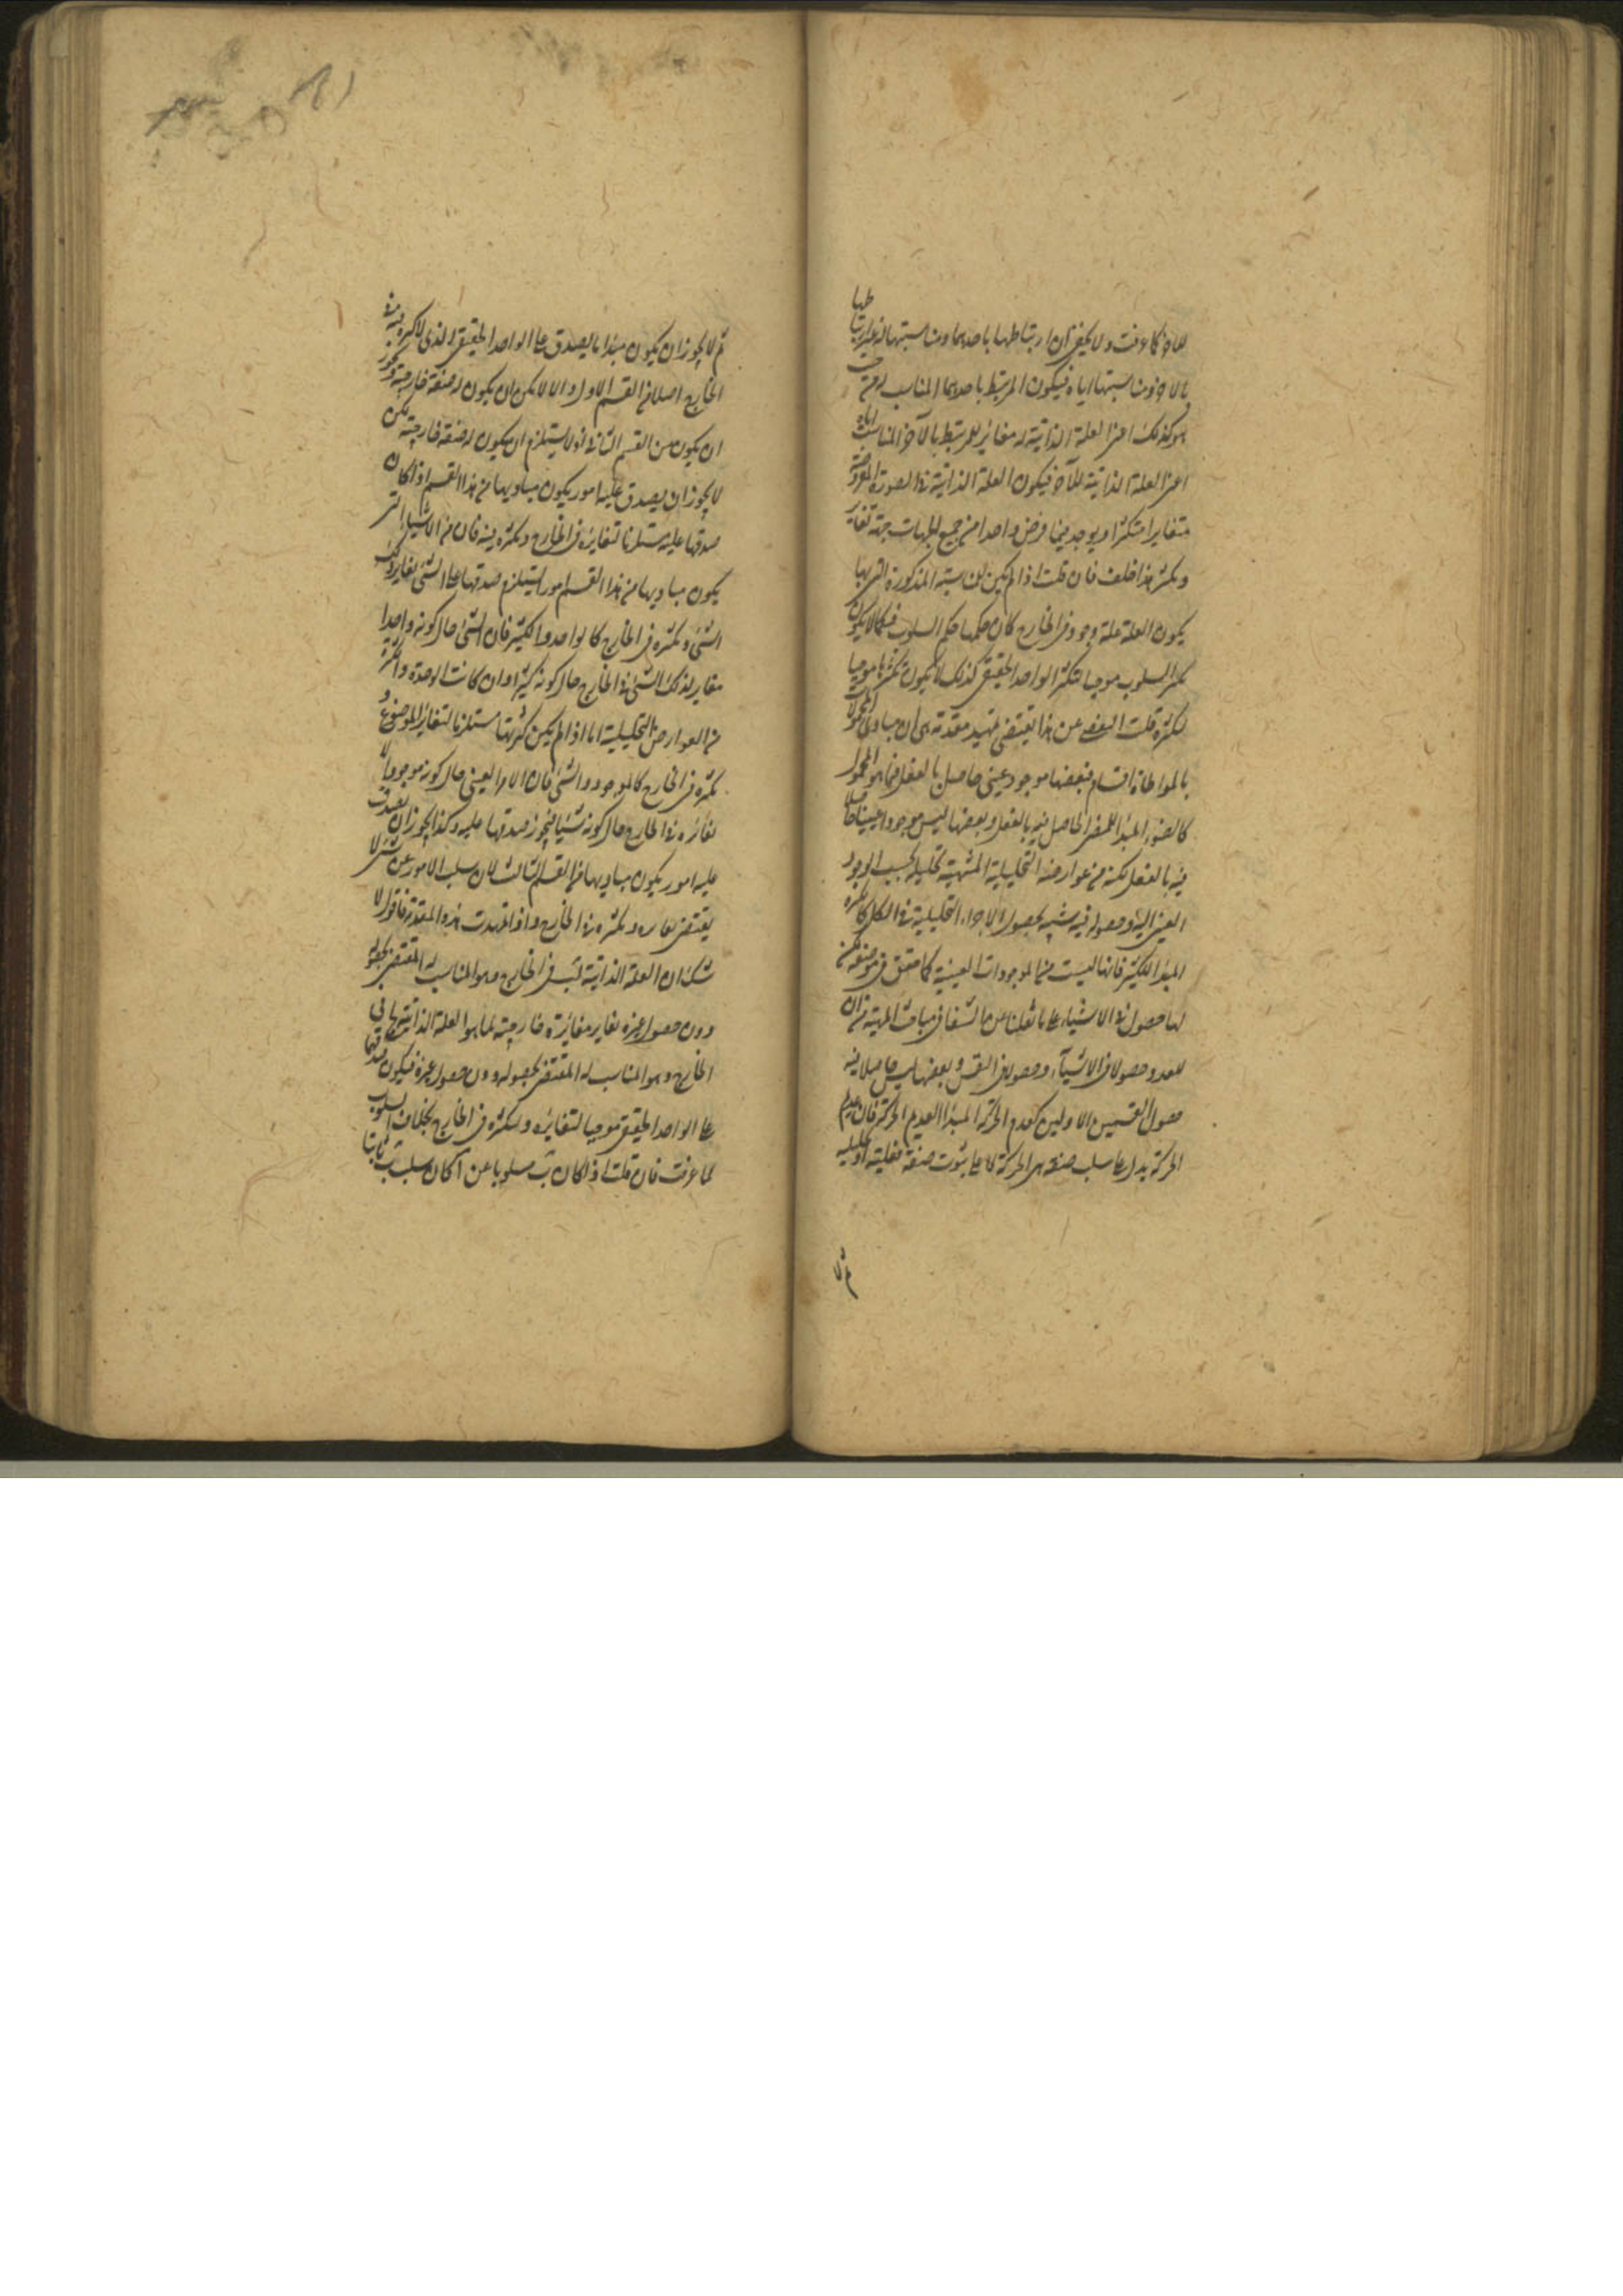 للآخر كما عرفت ولا يخفى ان ارتباطها باحدهما ومناسبتها له يغاير ارتباطها
بالآخر ومناسبتها اياه فيكون المرتبط باحدهما المناسب له من حيث
هو كذلك اعنى العلة الذاتية له مغاير للمرتبط بالآخر المناسب اياه
اعنى العلة الذاتية للآخر فيكون العلة الذاتية فى الصورة المفروضة
متغايرا متكثرا ويوجد فيما فرض واحدا من جميع الجهات جهة تغاير
وتكثر هذا خلف فان قلت اذا لم يكن المناسبة المذكورة التى بها
يكون العلة علة وجود فى الخارج كان حكمها حكم السلوب فكما لا يكون
تكثر السلوب موجبا لتكثر الواحد الحقيقى كذلك لا يكون تكثرها موجبا
لتكثره قلت التفصى عن هذا يقتضى تمهيد مقدمة هى ان مبادى المحمولات
بالمواطاة اقسام فبعضها موجود عينى حاصل بالفعل فيما هو المحمول
كالضوء المبدأ للمضىء الحاصل فيه بالفعل وبعضها ليس موجودا عينيا حاصلا
فيه بالفعل لكنه من عوارضه التحليلية المنتهية تحليله بحسب الوجود
العينى اليه وحصوله فيه شبيه بحصول الاجزاء التحليلية فى الكل كالكثرة
المبدأ للكثير فانها ليست من الموجودات العينية كما حقق فى موضعه لكن
لها حصول فى الاشياء على ما نقلنا عن الشفا فى مباحث المهية من ان
للعدد حصولا فى الاشياء وحصولا فى النفس وبعضها ليس حاصلا فيه
حصول القسمين الاولين كعدم الحركة المبدأ لعديم الحركة فان عديم
الحركة يدل على سلب صفة هى الحركة لا على ثبوت صفة فعلية او تحليلية
ثم لا
ثم لا يجوز ان يكون مبدأ ما يصدق على الواحد الحقيقى الذى لا كثرة فيه فى
الخارج اصلا من القسم الاول والا لامكن ان يكون له صفة خارجية ويجوز
ان يكون من القسم الثانى اذ لا يستلزم ان يكون له صفة خارجية لكن
لا يجوز ان يصدق عليه امور يكون مباديها من هذا القسم اذا كان
صدقها عليه مستلزما لتغايره فى الخارج وتكثره فيه فان من الاشياء التى
يكون مباديها من هذا القسم امورا يستلزم صدقها على الشىء تغاير ذلك
الشىء وتكثره فى الخارج كالواحد والكثير فان الشىء حال كونه واحدا
مغاير لذلك الشىء فى الخارج حال كونه كثيرا وان كانت الوحدة والكثرة
من العوارض التحليلية اما اذا لم يكن كثرتها مستلزما لتغاير الموضوع و
تكثره فى الخارج كالموجود والشىء فان الامر العينى حال كونه موجودا لا
تغايره فى الخارج حال كونه شيئا فيجوز صدقها عليه وكذا يجوز ان يصدق
عليه امور يكون مباديها من القسم الثالث لان سلب الامور عن شىء لا
يقتضى تغايره وتكثره فى الخارج واذا تمهدت هذه المقدمة فاقول لا
شك ان العلة الذاتية لب فى الخارج وهو المناسب له المقتضى لحصوله
دون حصول غيره يغاير مغايرة خارجية لما هو العلة الذاتية لها فى
الخارج وهو المناسب له المقتضى لحصوله دون حصول غيره فيكون صدقهما
على الواحد الحقيقى موجبا لتغايره ولتكثره فى الخارج بخلاف السلوب
لما عرفت فان قلت اذا كان ب مسلوبا عن آ كان سلب ب ثابتا